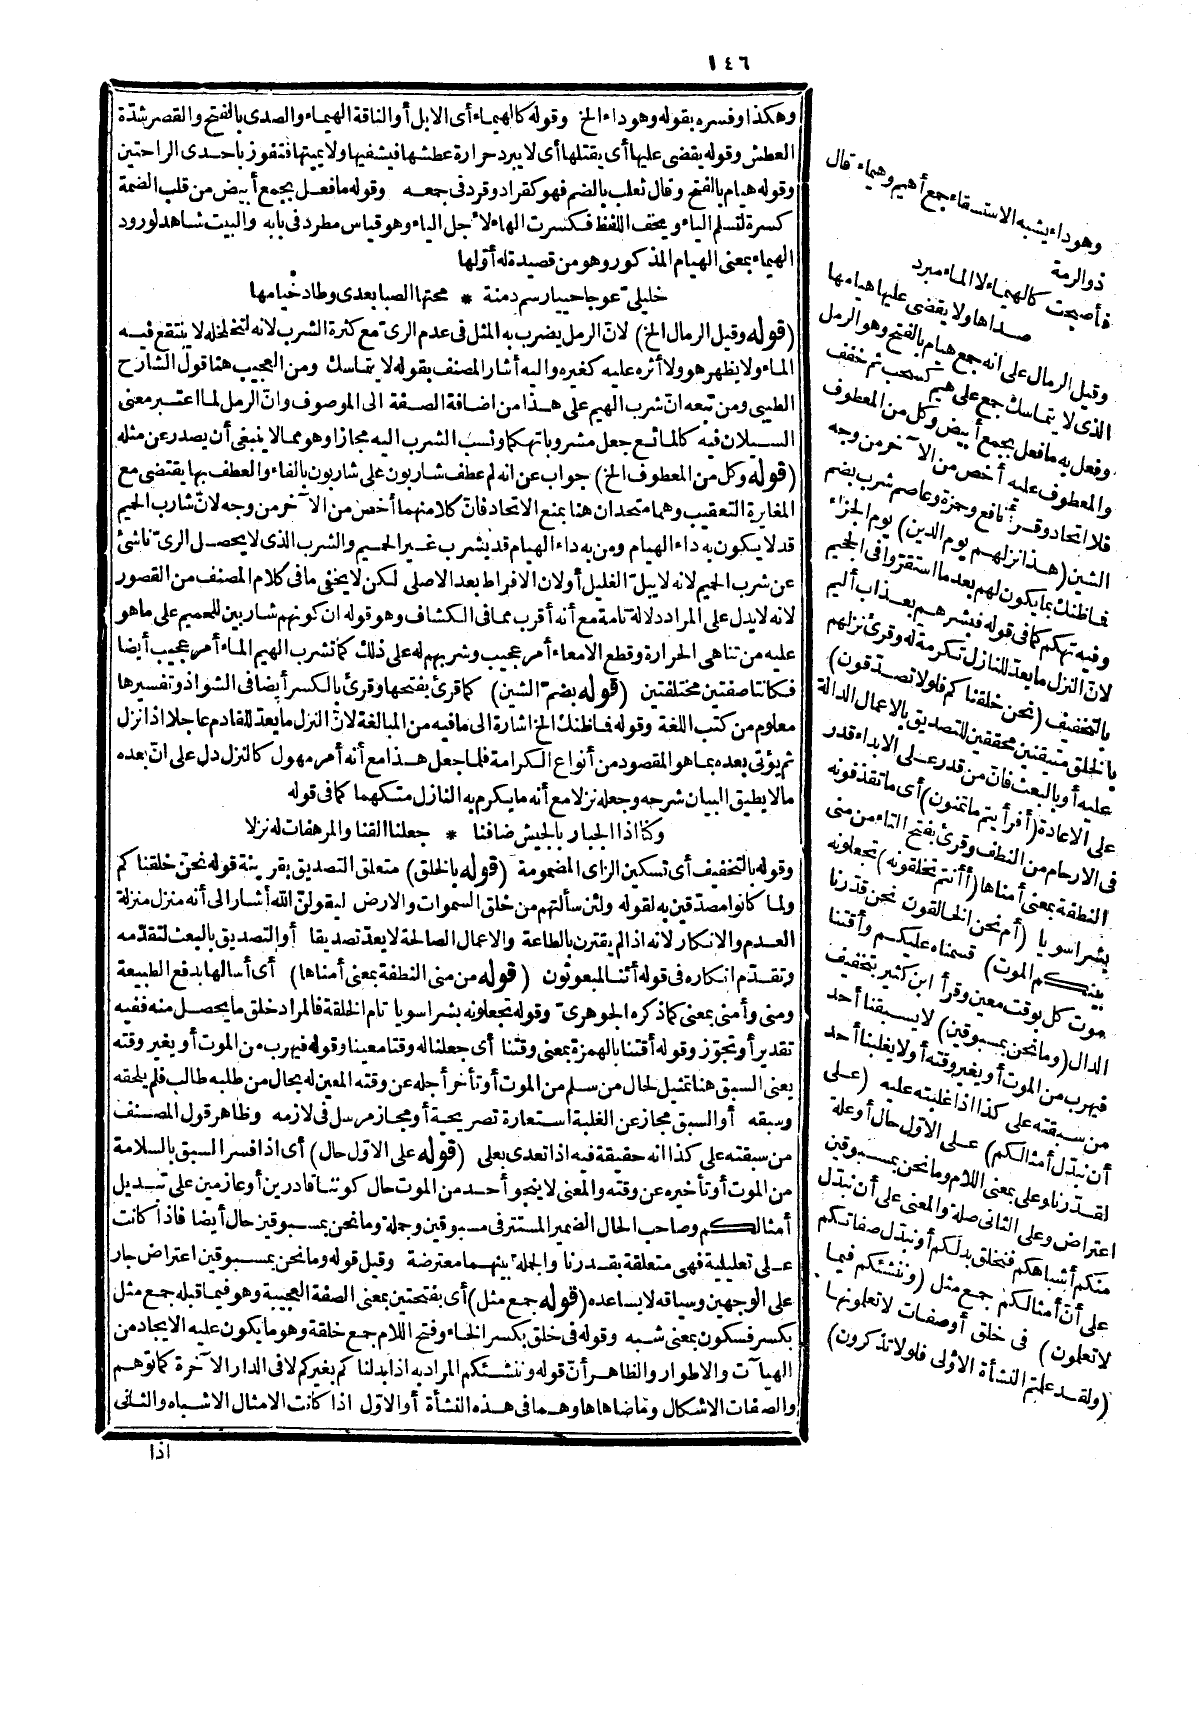 ١٤٦
وهكذا وفسره بقوله وهو داء الخ وقوله كالهيماء أى الابل أو الناقة الهيماء والصدى بالفتح والقصر شدّة
العطش وقوله يقضى عليها أى يقتلها أى لا يبرد حرارة عطشها فيشفيها ولا يميتها فتفوز باحدى الراحتين
وقوله هيام بالفتح وقال ثعلب بالضم فهو كقراد وقرد فى جمعه وقوله ما فعل بجمع أبيض من قلب الضمة
كسرة لتسلم الياء ويخف اللفظ فكسرت الهاء لاجل الياء وهو قياس مطرد فى بابه والبيت شاهد لورود
الهيماء بمعنى الهيام المذكور وهو من قصيدة له أوّلها
خليلىّ عوجا حييا رسم دمنة * محتها الصبا بعدى وطاد خيامها
(قوله وقيل الرمال الخ) لانّ الرمل يضرب به المثل فى عدم الرىّ مع كثرة الشرب لانه لتخلخله لا ينتقع فيه
الماء ولا يظهر هو ولا أثره عليه كغيره واليه أشار المصنف بقوله لا يتماسك ومن العجيب هنا قول الشارح
الطيبى ومن تبعه انّ شرب الهيم على هذا من اضافة الصفة الى الموصوف وانّ الرمل لما اعتبر معنى
السيلان فيه كالمائع جعل مشروبا تهكما ونسب الشرب اليه مجازا وهو مما لا ينبغى أن يصدر عن مثله
(قوله وكل من المعطوف الخ) جواب عن انه لم عطف شاربون على شاربون بالفاء والعطف بها يقتضى مع
المغايرة التعقيب وهما متحدان هنا بمنع الاتحاد فانّ كلا منهما أخص من الآخر من وجه لانّ شارب الحيم
قد لا يكون به داء الهيام ومن به داء الهيام قد يشرب غير الحميم والشرب الذى لا يحصل الرىّ ناشئ
عن شرب الحميم لانه لا يبلّ الغليل أو لان الافراط بعد الاصلى لكن لا يخفى ما فى كلام المصنف من القصور
لانه لا يدل على المراد دلالة تامة مع أنه أقرب مما فى الكشاف وهو قوله ان كونهم شاربين للحميم على ما هو
عليه من تناهى الحرارة وقطع الامعاء أمر عجيب وشربهم له على ذلك كما تشرب الهيم الماء أمر عجيب أيضا
فكانتا صفتين مختلفتين (قوله بضم الشين) كما قرئ بفتحها وقرئ بالكسر أيضا فى الشواذ وتفسيرها
معلوم من كتب اللغة وقوله فما ظنك الخ اشارة الى ما فيه من المبالغة لانّ النزل ما يعدّ للقادم عاجلا اذا نزل
ثم يؤتى بعده بما هو المقصود من أنواع الكرامة فلما جعل هذا مع أنه أمر مهول كالنزل دل على انّ بعده
ما لا يطيق البيان شرحه وجعله نزلا مع أنه ما يكرم به النازل متهكما كما فى قوله
وكنا اذا الجبار بالجيش ضافنا * جعلنا القنا والمرهفات له نزلا
وقوله بالتخفيف أى تسكين الزاى المضمومة (قوله بالخلق) متعلق التصديق بقرينة قوله نحن خلقناكم
ولما كانوا مصدّقين به لقوله ولئن سألتهم من خلق السموات والارض ليقولنّ الله أشار الى أنه منزل منزلة
العدم والانكار لانه اذا لم يقترن بالطاعة والاعمال الصالحة لا يعدّ تصديقا أو التصديق بالبعث لتقدّمه
وتقدّم انكاره فى قوله أئنا لمبعوثون (قوله من منى النطفة بمعنى أمناها) أى أسالها بدفع الطبيعة
ومنى وأمنى بمعنى كما ذكره الجوهرىّ وقوله تجعلونه بشرا سويا تام الخلقة فالمراد خلق ما يحصل منه ففيه
تقدير أو تجوّز وقوله أقتنا بالهمزة بمعنى وقتنا أى جعلنا له وقتا معينا وقوله فيهرب من الموت أو يغير وقته
يعنى السبق هنا تمثيل لحال من سلم من الموت أو تأخر أجله عن وقته المعين له بحال من طلبه طالب فلم يلحقه
وسبقه أو السبق مجاز عن الغلبة استعارة تصريحية أو مجاز مرسل فى لازمه وظاهر قول المصنف
من سبقته على كذا انه حقيقة فيه اذا تعدى بعلى (قوله على الاوّل حال) أى اذا فسر السبق بالسلامة
من الموت أو تأخيره عن وقته والمعنى لا ينجو أحد من الموت حال كوننا قادرين أو عازمين على تبديل
أمثالكم وصاحب الحال الضمير المستتر فى مسبوقين وجملة وما نحن بمسبوقين حال أيضا فاذا كانت
على تعليلية فهى متعلقة بقدرنا والجملة بينهما معترضة وقيل قوله وما نحن بمسبوقين اعتراض جار
على الوجهين وسياقه لا يساعده (قوله جمع مثل) أى بفتحتين بمعنى الصفة العجيبة وهو فيما قبله جمع مثل
بكسر فسكون بمعنى شبه وقوله فى خلق بكسر الخاء وفتح اللام جمع خلقة وهو ما يكون عليه الايجاد من
الهيآت والاطوار والظاهر أنّ قوله وننشئكم المراد به اذا بدلناكم بغيركم لا فى الدار الآخرة كما توهم
والصفات الاشكال وما ضاهاها وهما فى هذه النشأة أو الاوّل اذا كانت الامثال الاشباه والثانى
اذا
وهو داء يشبه الاستسقاء جمع أهيم وهيماء قال
ذو الرمة
فأصبحت كالهيماء لا الماء مبرد
صداها ولا يقضى عليها هيامها
وقيل الرمال على انه جمع هيام بالفتح وهو الرمل
الذى لا يتماسك جمع على هيم كسحب ثم خفف
وفعل به ما فعل بجمع أبيض وكل من المعطوف
والمعطوف عليه أخص من الآخر من وجه
فلا اتحاد وقرأ نافع وحمزة وعاصم شرب بضم
الشين (هذا نزلهم يوم الدين) يوم الجزاء
فما ظنك بما يكون لهم بعد ما استقروا فى الجحيم
وفيه تهكم كما فى قوله فبشرهم بعذاب أليم
لانّ النزل ما يعدّ للنازل تكرمة له وقرئ نزلهم
بالتخفيف (نحن خلقناكم فلولا تصدّقون)
بالخلق متيقنين محققين للتصديق بالاعمال الدالة
عليه أو بالبعث فانّ من قدر على الابداء قدر
على الاعادة (أفرأيتم ما تمنون) أى ما تقذفونه
فى الارحام من النطف وقرئ بفتح التاء من منى
النطفة بمعنى أمناها (أأنتم تخلقونه) تجعلونه
بشرا سويا (أم نحن الخالقون نحن قدّرنا
بينكم الموت) قسمناه عليكم وأقتنا
موت كل بوقت معين وقرأ ابن كثير بتخفيف
الدال (وما نحن بمسبوقين) لا يسبقنا أحد
فيهرب من الموت أو يغير وقته أو لا يغلبنا أحد
من سبقته على كذا اذا غلبته عليه (على
أن نبدّل أمثالكم) على الاوّل حال أو علة
لقدّرنا وعلى بمعنى اللام وما نحن بمسبوقين
اعتراض وعلى الثانى صلة والمعنى على أن نبدّل
منكم أشباهكم فنخلق بدلكم أو نبدّل صفاتكم
على أنّ أمثالكم جمع مثل (وننشئكم فيما
لا تعلمون) فى خلق أو صفات لا تعلمونها
(ولقد علمتم النشأة الاولى فلولا تذكرون)